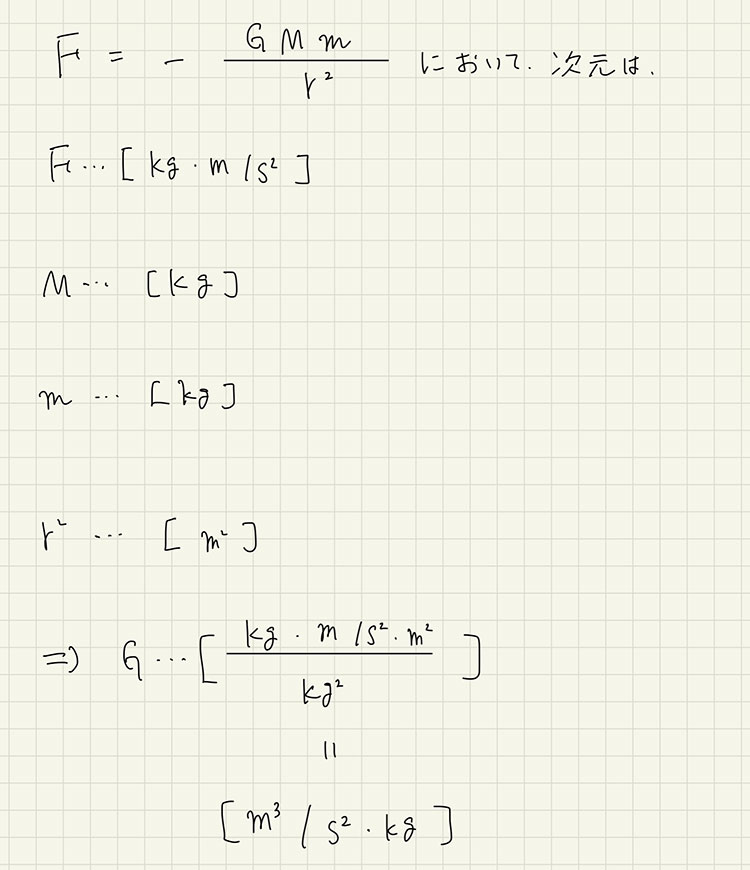 F = - GMm / r² において. 次元は.
F … [ kg · m /s² ]
M … [kg]
m … [kg]
r² … [ m² ]
⇒ G … [ kg · m /s² · m² / kg² ]
||
[ m³ / s² · kg ]